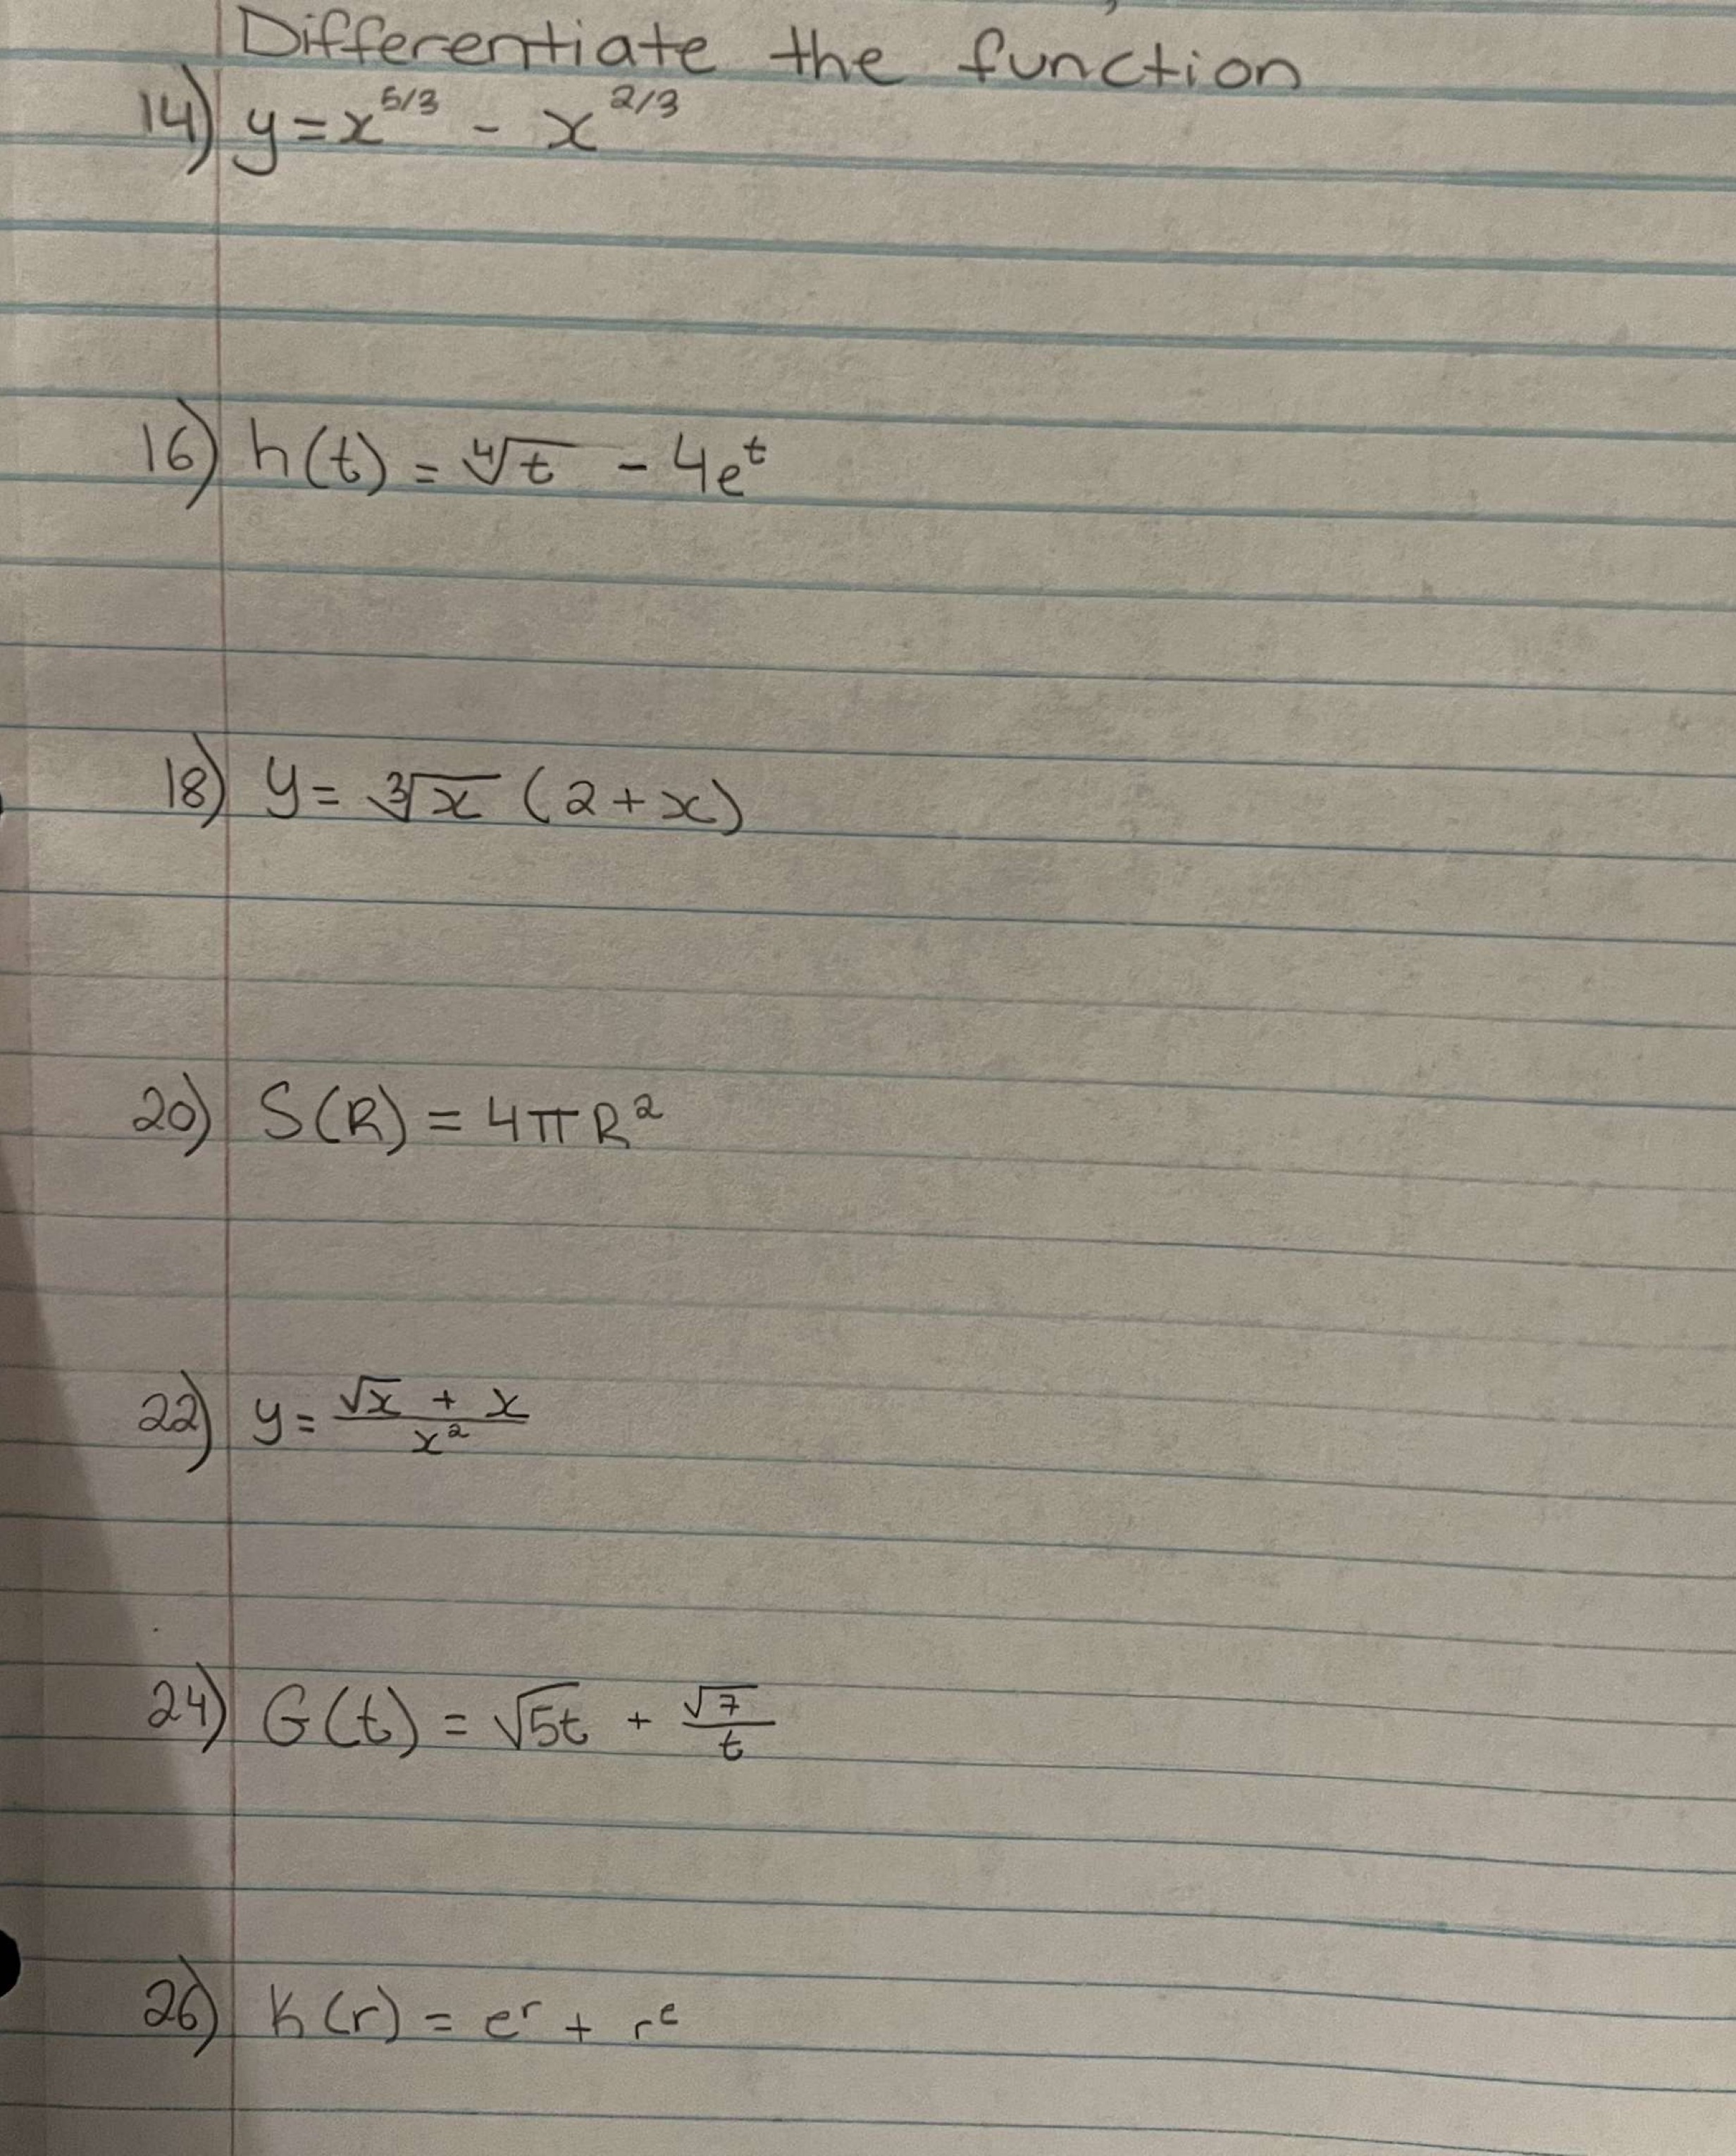 Differentiate the function
14) y = x^{5/3} - x^{2/3}
16) h(t) = ∜t - 4e^t
18) y = ∛x (2 + x)
20) S(R) = 4πR²
22) y = (√x + x)/x²
24) G(t) = √5t + √7/t
26) K(r) = e^r + r^e